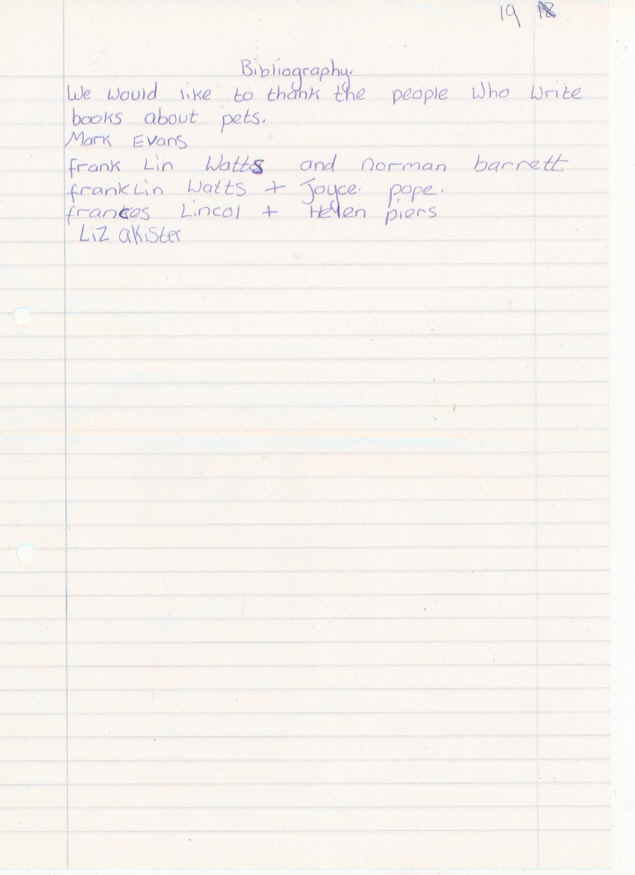 19
Bibliography.
We would like to thank the people who write
books about pets.
Mark Evans
frank Lin Watts and norman barrett
franklin Watts + Joyce pope.
frances Lincol + Helen piers
Liz akister